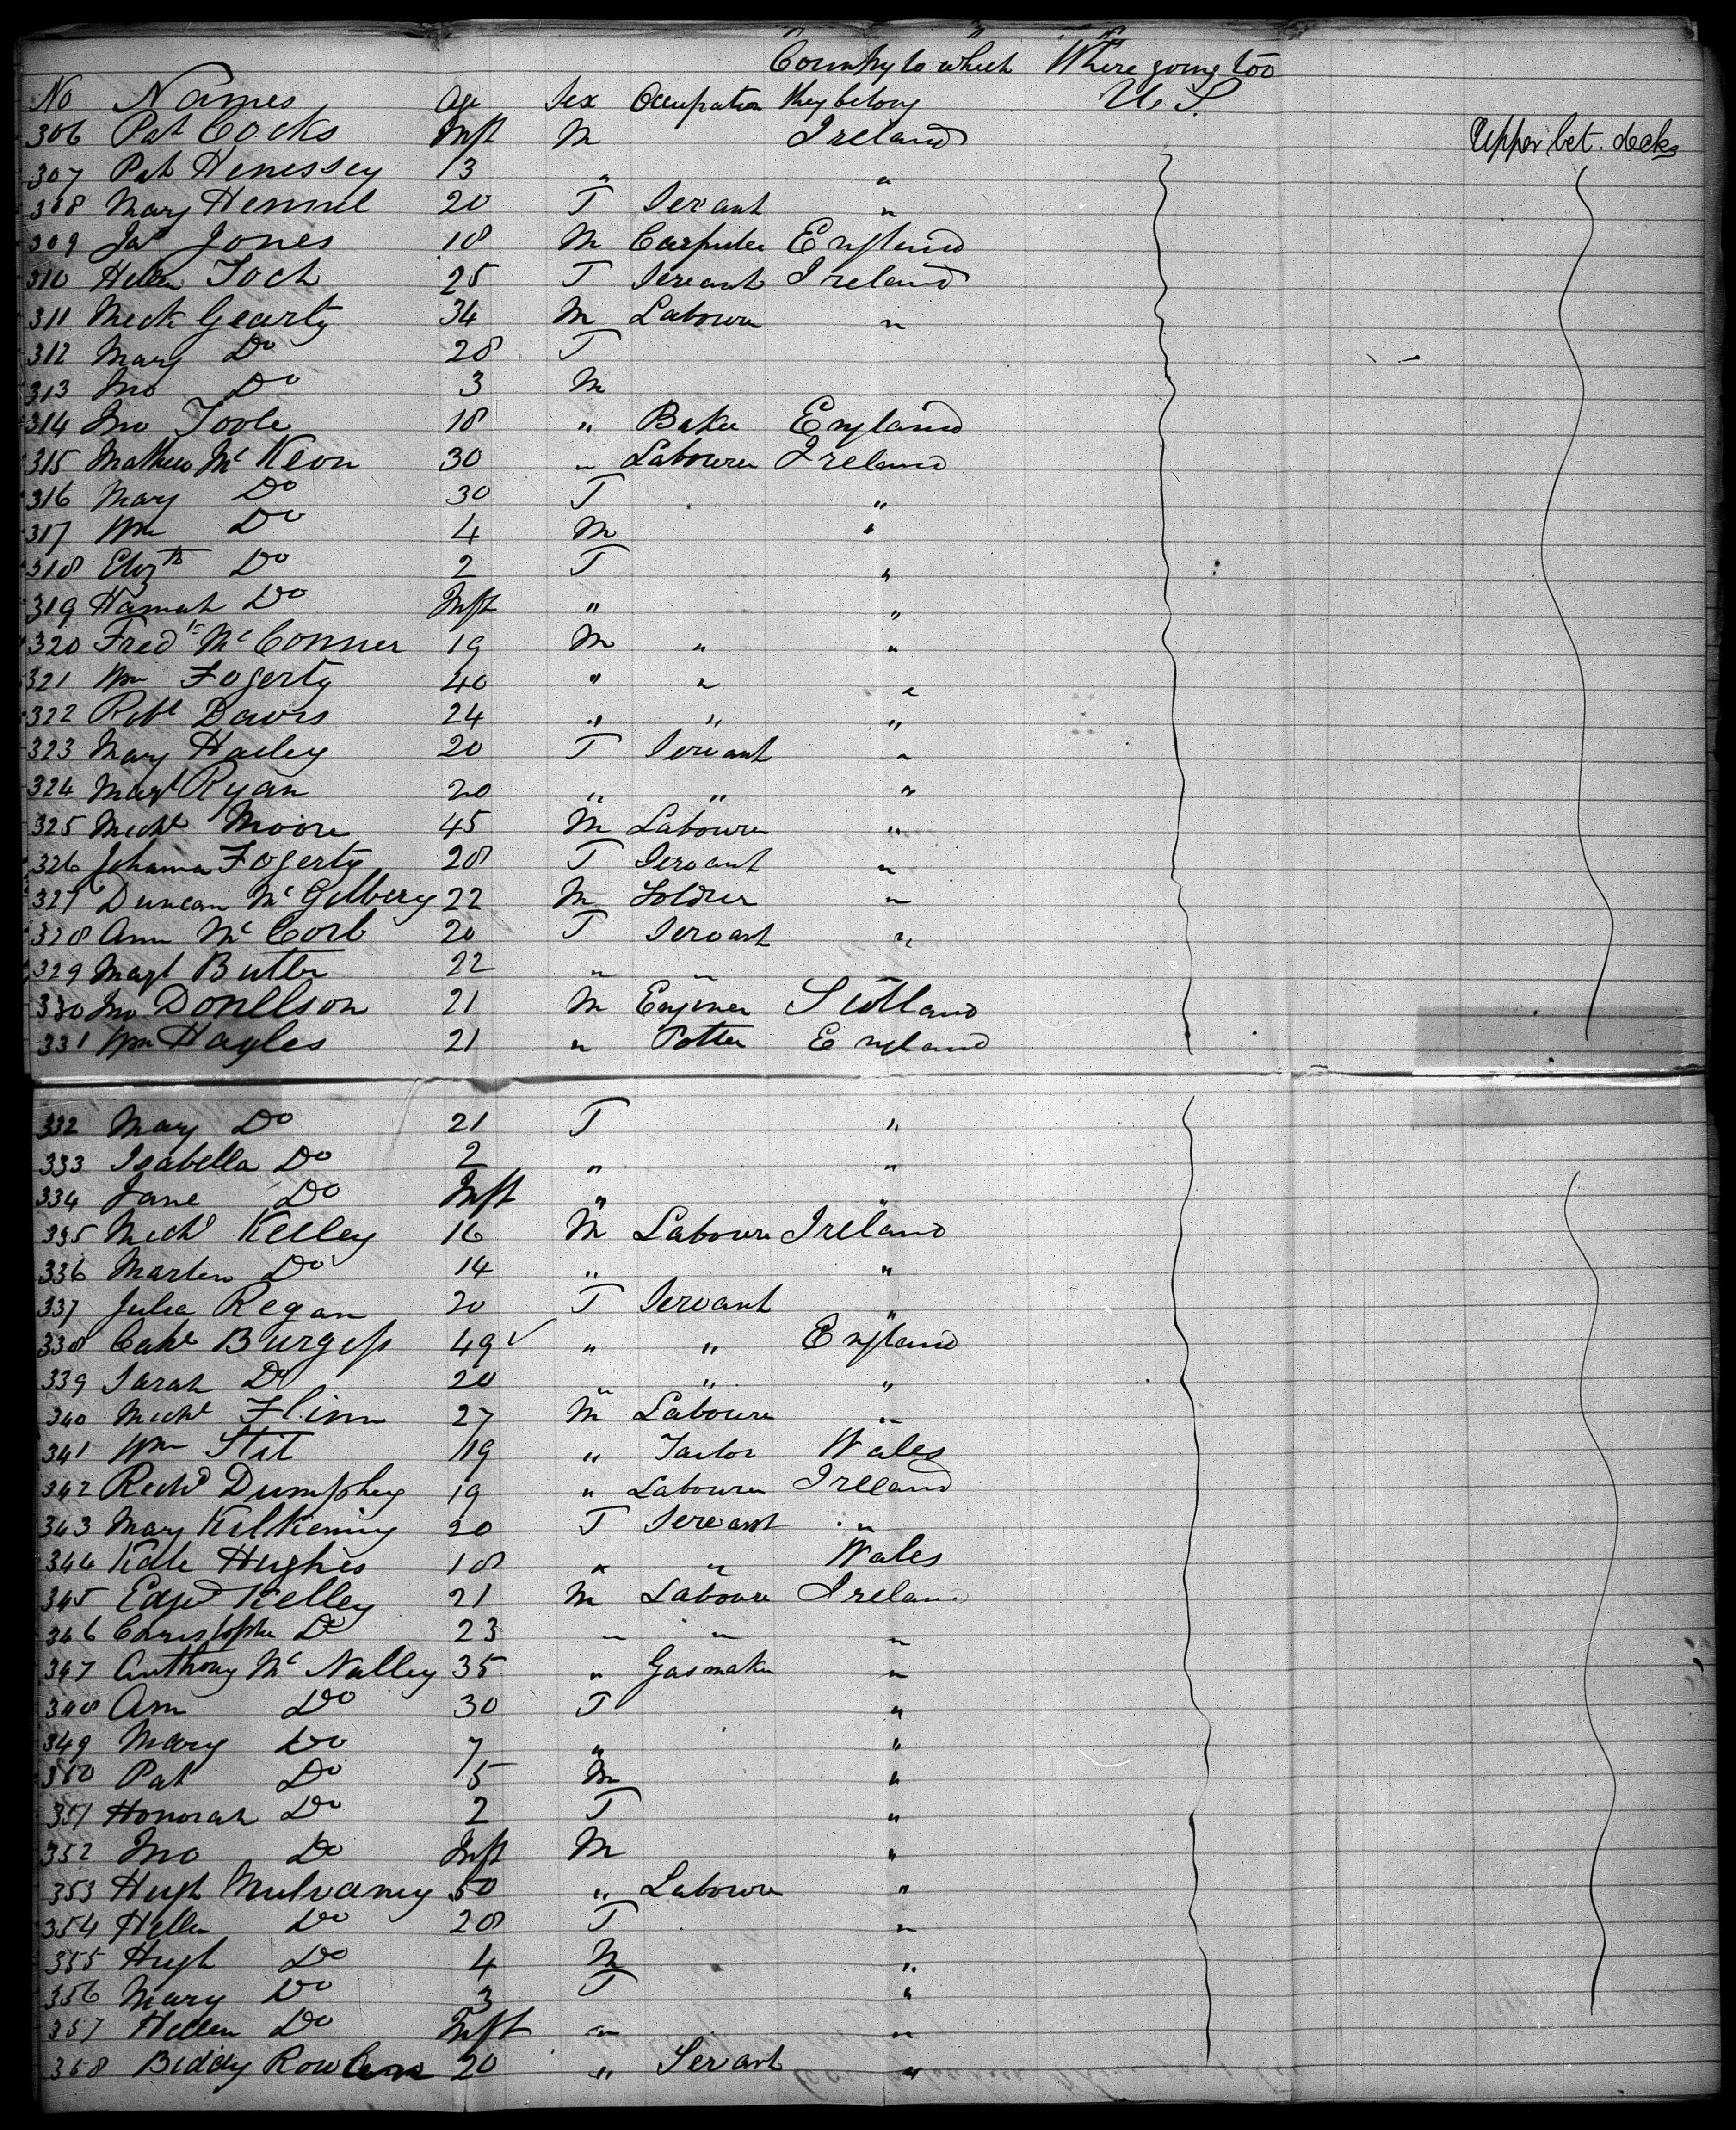 Country to which Where going too
No Names Age Sex Occupation they belong U.S.
306 Pat Cocks Inft M Ireland Upper bet. decks
307 Pat Henessey 13 " "
308 Mary 20 F Servant "
309 Jas Jones 18 M Carpenter England
310 Hellen 25 F Servant Ireland
311 Mick Gearty 34 M Labourer "
312 Mary Do 28 F
313 Jno Do 3 M
314 Jno Toole 18 " Baker England
315 Mathew McKeon 30 " Labourer Ireland
316 Mary Do 30 F "
317 Wm Do 4 M "
318 Elizth Do 2 F "
319 Hannah Do Inft " "
320 Fredk McConner 19 M " "
321 Wm Fogerty 40 " " "
322 Robt Davis 24 " " "
323 Mary Hailey 20 F Servant "
324 Margt Ryan 20 " " "
325 Michl Moore 45 M Labourer "
326 Johanna Fogerty 28 F Servant "
327 Duncan McGilbery 22 M Soldier "
328 Ann McCort 20 F Servant "
329 Margt Butler 22 " "
330 Jno Donellson 21 M Enginer Scotland
331 Wm Hayles 21 " Potter England
332 Mary Do 21 F "
333 Isabella Do 2 " "
334 Jane Do Inft " "
335 Michl Kelley 16 M Labourer Ireland
336 Marten Do 14 " "
337 Julia Regan 20 F Servant "
338 Cathe Burgess 49 " " England
339 Sarah Do 20 " " "
340 Michl Flinn 27 M Labourer "
341 Wm Stit 19 " Tailor Wales
342 Richd Dumphey 19 " Labourer Ireland
343 Mary Kilkenny 20 F Servant "
344 Kate Hughes 18 " " Wales
345 Edwd Kelley 21 M Labourer Ireland
346 Christopher Do 23 " " "
347 Anthony McNalley 35 " Gasmaker "
348 Ann Do 30 F "
349 Mary Do 7 " "
350 Pat Do 5 M "
351 Honorah Do 2 F "
352 Jno Do Inft M "
353 Hugh Mulvaney 50 " Labourer "
354 Hellen Do 28 F "
355 Hugh Do 4 M "
356 Mary Do 3 F "
357 Hellen Do Inft " "
358 Biddy 20 " Servant "